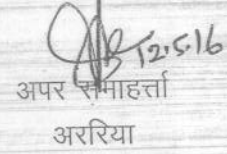 12.5.16
अपर समाहर्त्ता
अररिया